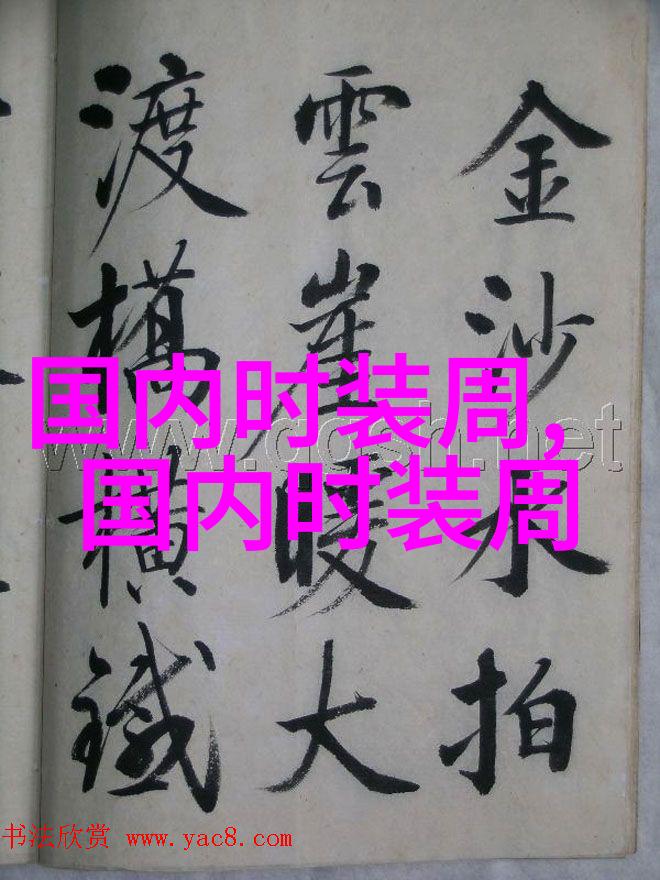 金沙水拍
雲崖暖大
渡橋橫鐵
国内时装周,
国内时装周
书法欣赏 www.yac8.com